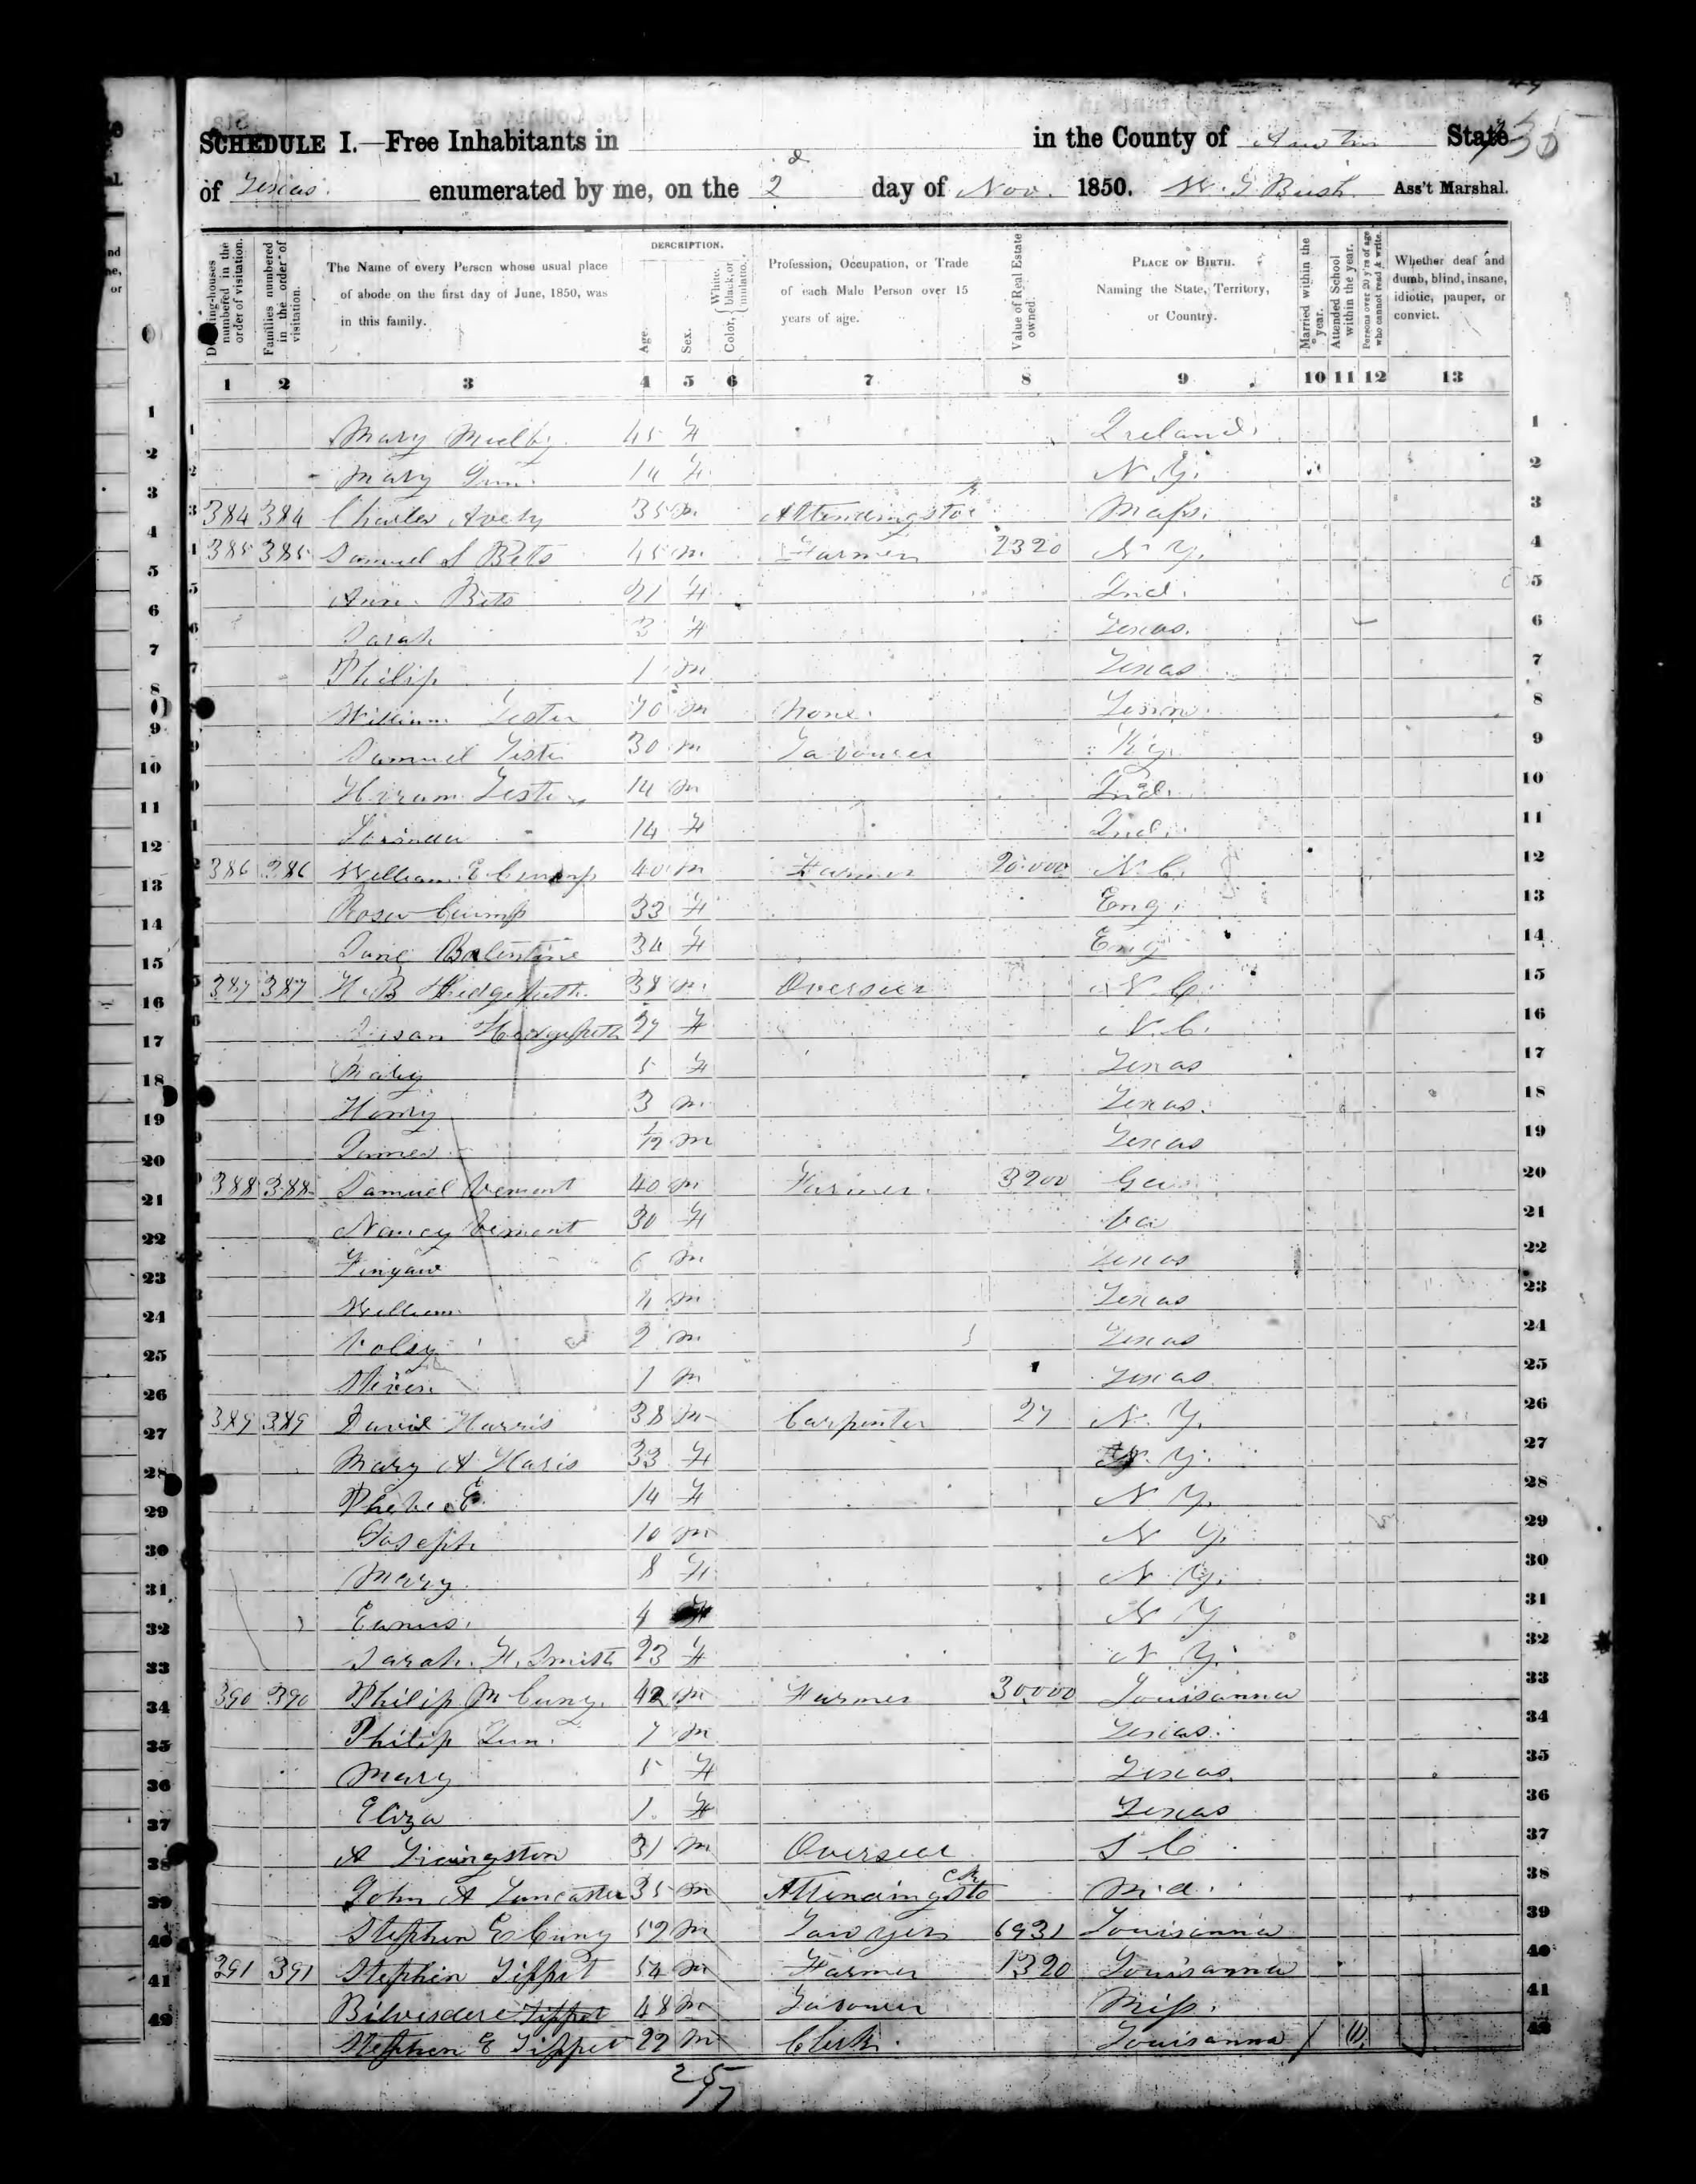 SCHEDULE I.—Free Inhabitants in in the County of Austin State
of Texas. enumerated by me, on the 2d day of Nov. 1850. W. J Bush Ass't Marshal.
Dwelling-houses numbered in the order of visitation.
Families numbered in the order of visitation.
The Name of every Person whose usual place of abode on the first day of June, 1850, was in this family.
DESCRIPTION.
Age.
Sex.
Color, White, black, or mulatto.
Profession, Occupation, or Trade of each Male Person over 15 years of age.
Value of Real Estate owned.
PLACE OF BIRTH. Naming the State, Territory, or Country.
Married within the year.
Attended School within the year.
Persons over 20 y'rs of age who cannot read & write.
Whether deaf and dumb, blind, insane, idiotic, pauper, or convict.
1 2 3 4 5 6 7 8 9 10 11 12 13
1 Mary 45 F Ireland. 1
2 Mary 14 F N. Y. 2
3 384 384 Charles Avery 35 m Attending store Mass. 3
4 385 385 Samuel S Betts 45 m Farmer 2320 N Y. 4
5 Ann Bets 21 F Ind. 5
6 Sarah 3 F Texas. 6
7 Philip 1 m Texas 7
8 William Lester 70 m None. 8
9 Samuel Lester 30 m Labourer Ky. 9
10 Hiram Lester 14 m Ind. 10
11 14 F Ind. 11
12 386 386 William E Crump 40 m Farmer 20.000 N. C. 12
13 Rosa Crump 33 F Eng. 13
14 Jane Balentine 34 F Eng 14
15 387 387 H. B Hedgepeth 38 m Overseer N. C. 15
16 Susan Hedgepeth 27 F N. C. 16
17 Mary 5 F Texas 17
18 Henry 3 m Texas. 18
19 James m Texas 19
20 388 388 Samuel 40 m Farmer. 3200 Ga. 20
21 Nancy 30 F Va 21
22 6 m Texas 22
23 William 4 m Texas 23
24 2 m Texas 24
25 Steven 1 m Texas 25
26 389 389 David Harris 38 m Carpenter 27 N. Y. 26
27 Mary A Haris 33 F N. Y. 27
28 Phebe E. 14 F N Y. 28
29 Joseph 10 m N Y. 29
30 Mary 8 F N Y. 30
31 4 N Y 31
32 Sarah. F. Smith 23 F N Y. 32
33 390 390 Philip M Cuny. 42 m Farmer 30.000 Louisanna 33
34 Philip Jun. 7 m Texas. 34
35 Mary 5 F Texas. 35
36 Eliza 1. F Texas 36
37 A Livingston 31 m Overseer S C 37
38 John A Lancaster 35 m Attending store Md. 38
39 Stephen E Cuny 52 m Lawyer 6931 Louisanna 39
40 391 391 Stephen Tippet 54 m Farmer 1320 Louisanna 40
41 Bilvisdere Tippet 48 m Labourer Miss. 41
42 Stephen E Tippet 22 m Clerk. Louisanna 42